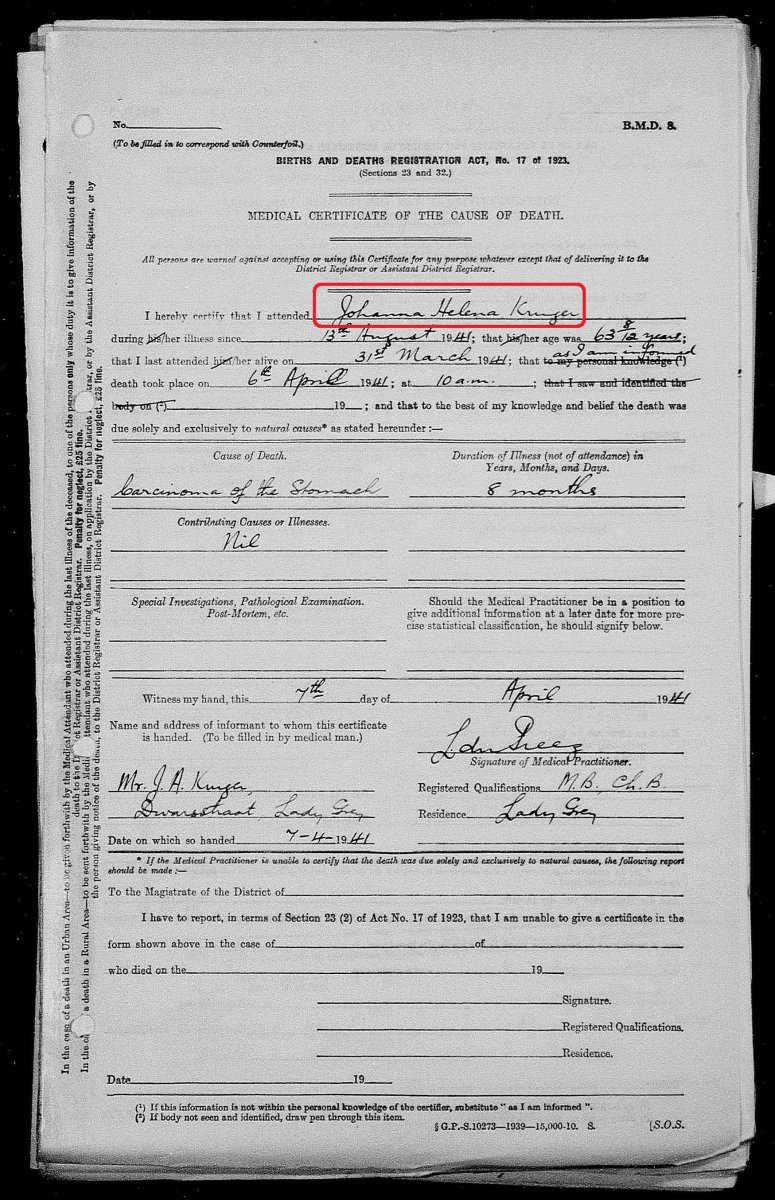 No.
B.M.D. 8.
(To be filled in to correspond with Counterfoil.)
BIRTHS AND DEATHS REGISTRATION ACT, No. 17 of 1923.
(Sections 23 and 32.)
MEDICAL CERTIFICATE OF THE CAUSE OF DEATH.
All persons are warned against accepting or using this Certificate for any purpose whatever except that of delivering it to the
District Registrar or Assistant District Registrar.
I hereby certify that I attended Johanna Helena Kruger
during his/her illness since 13th August 1941; that his/her age was 63 8/12 years;
that I last attended him/her alive on 31st March 1941; that to my personal knowledge (¹) as I am informed
death took place on 6th April 1941; at 10 a.m. ; that I saw and identified the
body on (²) 19 ; and that to the best of my knowledge and belief the death was
due solely and exclusively to natural causes* as stated hereunder :—
Cause of Death.
Duration of Illness (not of attendance) in
Years, Months, and Days.
Carcinoma of the Stomach
8 months
Contributing Causes or Illnesses.
Nil
Special Investigations, Pathological Examination.
Post-Mortem, etc.
Should the Medical Practitioner be in a position to
give additional information at a later date for more pre-
cise statistical classification, he should signify below.
Witness my hand, this 7th day of April 1941
Name and address of informant to whom this certificate
is handed. (To be filled in by medical man.)
L du Preez
Signature of Medical Practitioner.
Mr. J. A. Kruger,
Registered Qualifications M.B. Ch.B.
Dwarsstraat, Lady Grey
Residence Lady Grey
Date on which so handed 7-4-1941
* If the Medical Practitioner is unable to certify that the death was due solely and exclusively to natural causes, the following report
should be made :—
To the Magistrate of the District of
I have to report, in terms of Section 23 (2) of Act No. 17 of 1923, that I am unable to give a certificate in the
form shown above in the case of of
who died on the 19
Signature.
Registered Qualifications.
Residence.
Date 19
(¹) If this information is not within the personal knowledge of the certifier, substitute " as I am informed ".
(²) If body not seen and identified, draw pen through this item.
§ G.P.-S.10273—1939—15,000-10. S.
[S.O.S.
In the case of a death in an Urban Area—to be given forthwith by the Medical Attendant who attended during the last illness of the deceased, to one of the persons only whose duty it is to give information of the
death to the District Registrar or Assistant District Registrar. Penalty for neglect, £25 fine.
In the a death in a Rural Area—to be sent forthwith by the attendant who attended during the last illness, on application by the District or by the Assistant District Registrar, or by
the person giving notice of the death, to the District Registrar or Assistant District Registrar. Penalty for neglect, £25 fine.